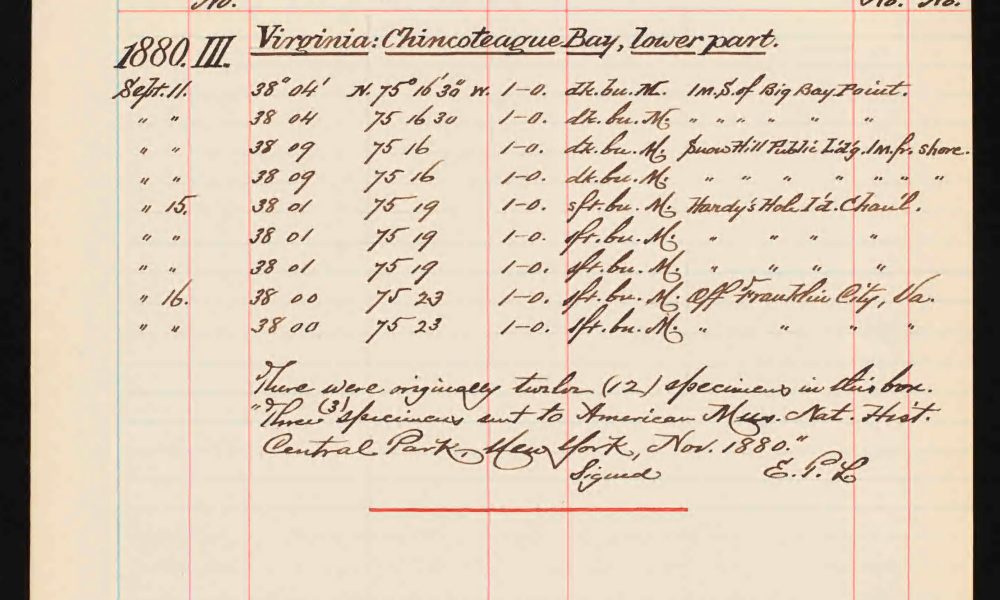 No. No. No.
1880. III. Virginia: Chincoteague Bay, lower part.
Sept. 11. 38° 04' N. 75° 16' 30" W. 1-0. dk. bu. M. 1 m. S. of Big Bay Point.
" " 38 04 75 16 30 1-0. dk. bu. M. " " " " " "
" " 38 09 75 16 1-0. dk. bu. M. Snow Hill Public L'd'g. 1 m. fr. shore.
" " 38 09 75 16 1-0. dk. bu. M. " " " " " " "
" 15. 38 01 75 19 1-0. sft. bu. M. Hardy's Hole I'd. Chan'l.
" " 38 01 75 19 1-0. sft. bu. M. " " " "
" " 38 01 75 19 1-0. sft. bu. M. " " " "
" 16. 38 00 75 23 1-0. sft. bu. M. Off Franklin City, Va.
" " 38 00 75 23 1-0. sft. bu. M. " " " "
"There were originally twelve (12) specimens in this box.
"Three (3) specimens sent to American Mus. Nat. Hist.
Central Park, New York, Nov. 1880."
Signed E. P. L